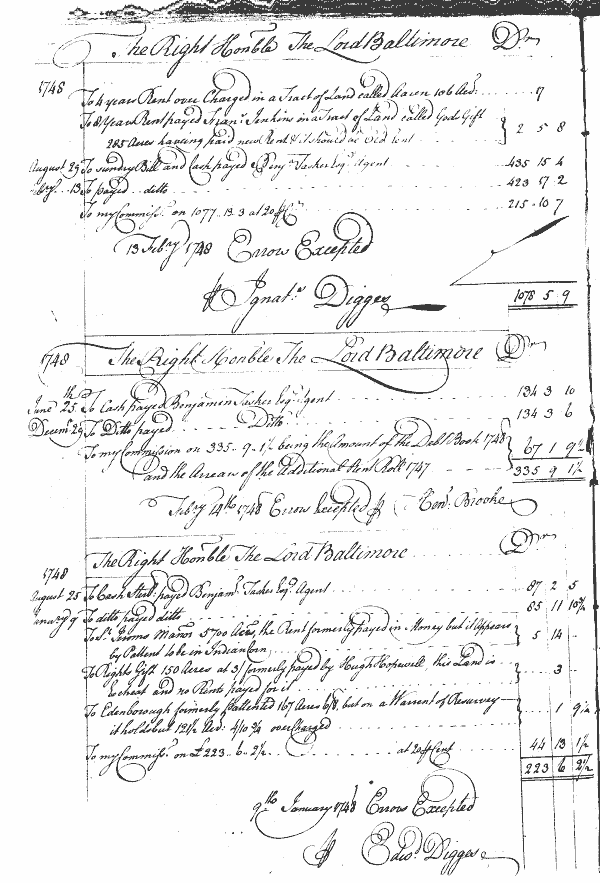 The Right Honble The Lord Baltimore Dr
1748
To 4 years Rent over Charged in a Tract of Land called Haven 106 Acrs 7
To 8 Years Rent payed Frans Jenkins in a Tract of Land called Gods Gift
285 Acres having paid new Rent & it should be Old Rent 2 5 8
August 29 To sundry Bill and Cash payed Benja Tasker Esqr Agent 435 15 4
13 To payed ditto 423 17 2
To my Commissn on 1077 13 3 at 20 ₱ Ct 215 10 7
13 Febry 1748 Errors Excepted
₱ Ignats Digges
1078 5 9
1748 The Right Honble The Lord Baltimore Dr
June 25th To Cash payed Benjamin Tasker Esqr Agent 134 3 10
Decemr 29 To Ditto payed Ditto 134 3 6
To my Commission on 335 .. 9 .. 1½ being the Amount of the Debt Book 1748
and the Arrears of the Additional Rent Roll 1747 67 1 9½
335 9 1½
Febry 14th 1748 Errors Excepted ₱ Henr. Brooke
The Right Honble The Lord Baltimore Dr
1748
August 25 To Cash payed Benjamn Tasker Esqr Agent 87 2 5
January 9 To ditto payed ditto 85 11 10¾
To St Jeroms Manor 5700 Acres, the Rent formerly payed in Money but it Appears
by Pattent to be in Indian Corn 5 14
To Rights Gift 150 Acres at 3/ formerly payed by Hugh Hopewell this Land is
Escheat and no Rents payed for it 3
To Edenborough formerly Pattented 167 Acres 6/8, but on a Warrant of Resurvey
it holds but 121½ Acr: 4/10¾ overcharged 1 9¼
To my Commissn on £223 .. 6 .. 2½ at 20 ₱ Cent 44 13 1½
223 6 2½
9th January 1748 Errors Excepted
₱ Edwd Digges